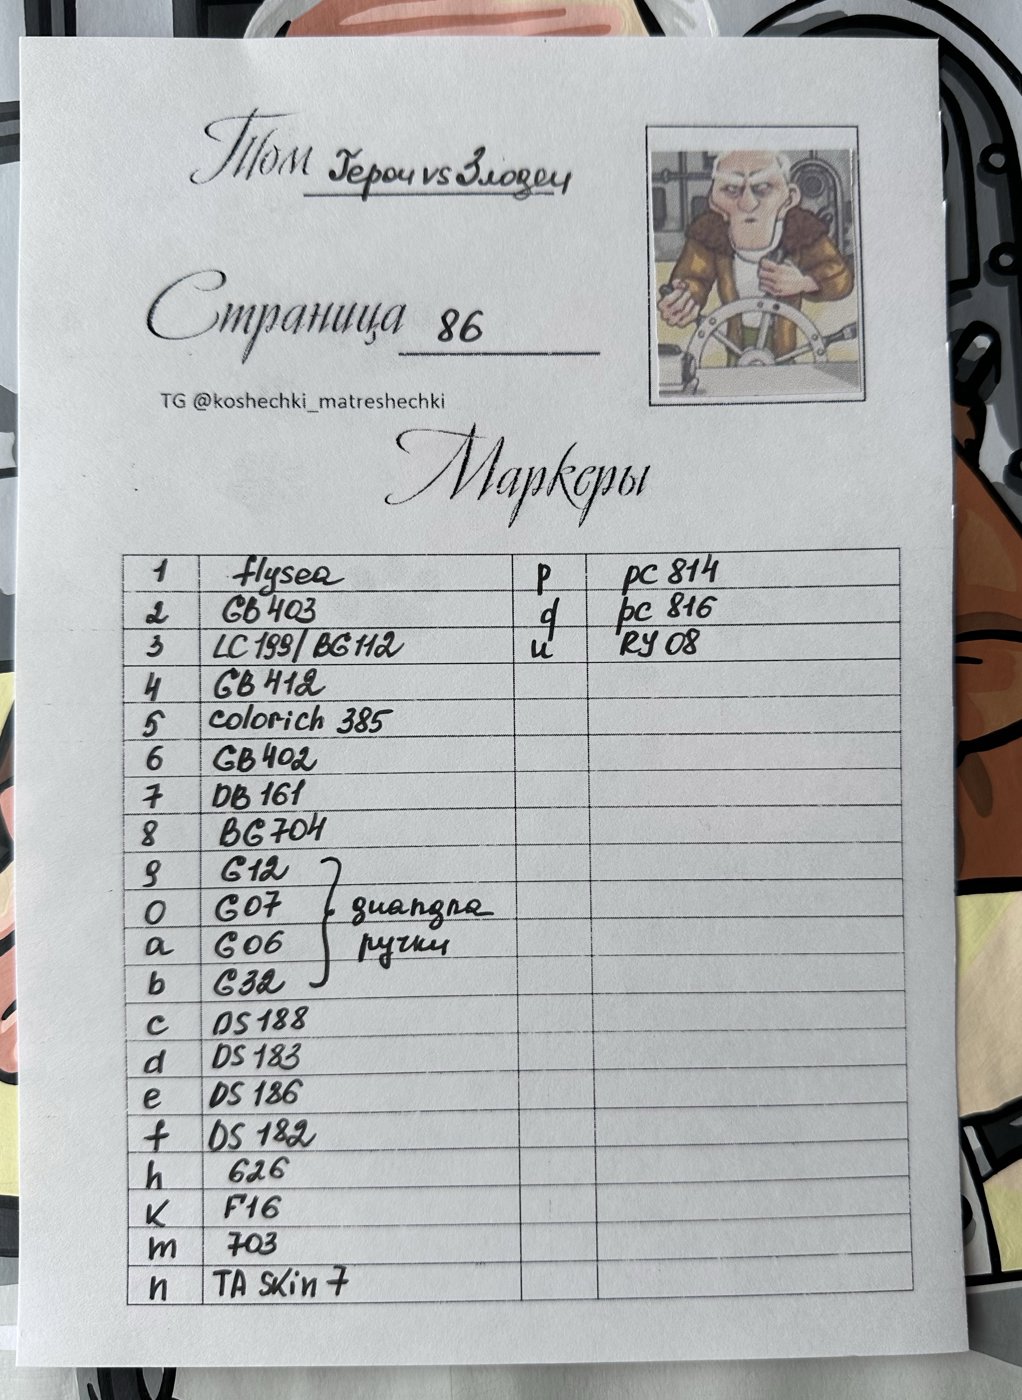 Том Герои vs Злодеи
Страница 86
TG @koshechki_matreshechki
Маркеры
1 flysea p pc 814
2 GB 403 q pc 816
3 LC 199/BG 112 u RY 08
4 GB 412
5 colorich 385
6 GB 402
7 DB 161
8 BG 704
9 G12
0 G07 диапдпа
a G06 ручки
b G32
c DS 188
d DS 183
e DS 186
f DS 182
h 626
K F16
m 703
n TA Skin 7